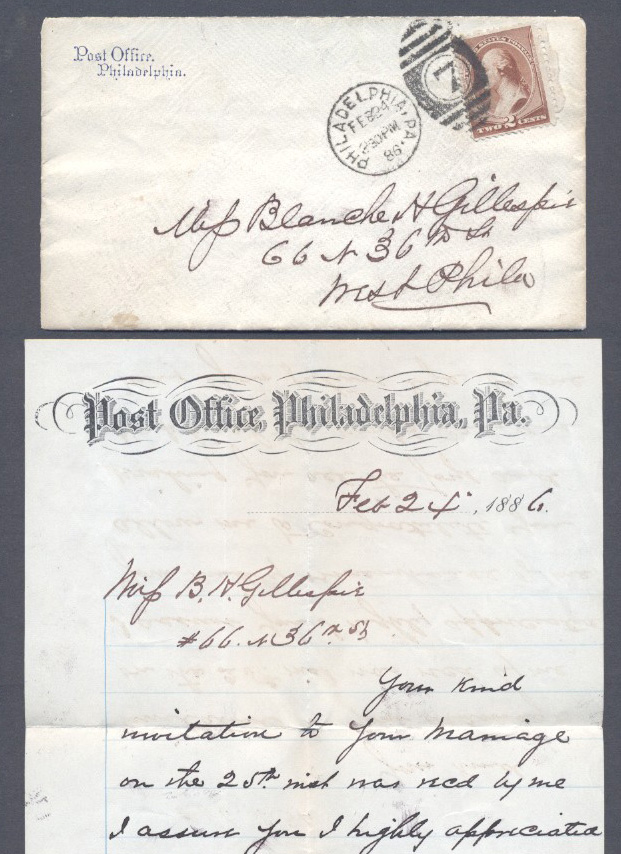 Post Office,
Philadelphia.
PHILADELPHIA, PA.
FEB 24
230 PM
86
7
UNITED STATES POSTAGE
TWO 2 CENTS
Miss Blanche H Gillespie
66 N 36th St
West Phila
Post Office, Philadelphia, Pa.
Feb 24th, 1886.
Miss B. H. Gillespie
#66. N 36th St
Your kind
invitation to Your Marriage
on the 25th inst was recd by me
I assure You I highly appreciated